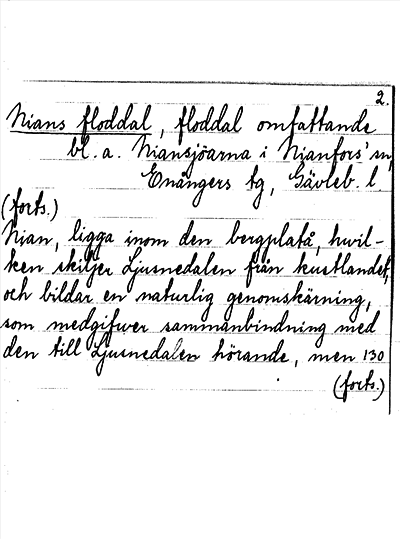 2.
Nians floddal, floddal omfattande
bl. a. Niansjöarna i Nianfors' sn,
Enångers tg, Gävleb. l.
(forts.)
Nian, ligga inom den bergplatå, hvil-
ken skiljer Ljusnedalen från kustlandet,
och bildar en naturlig genomskärning,
som medgifver sammanbindning med
den till Ljusnedalen hörande, men 130
(forts.)